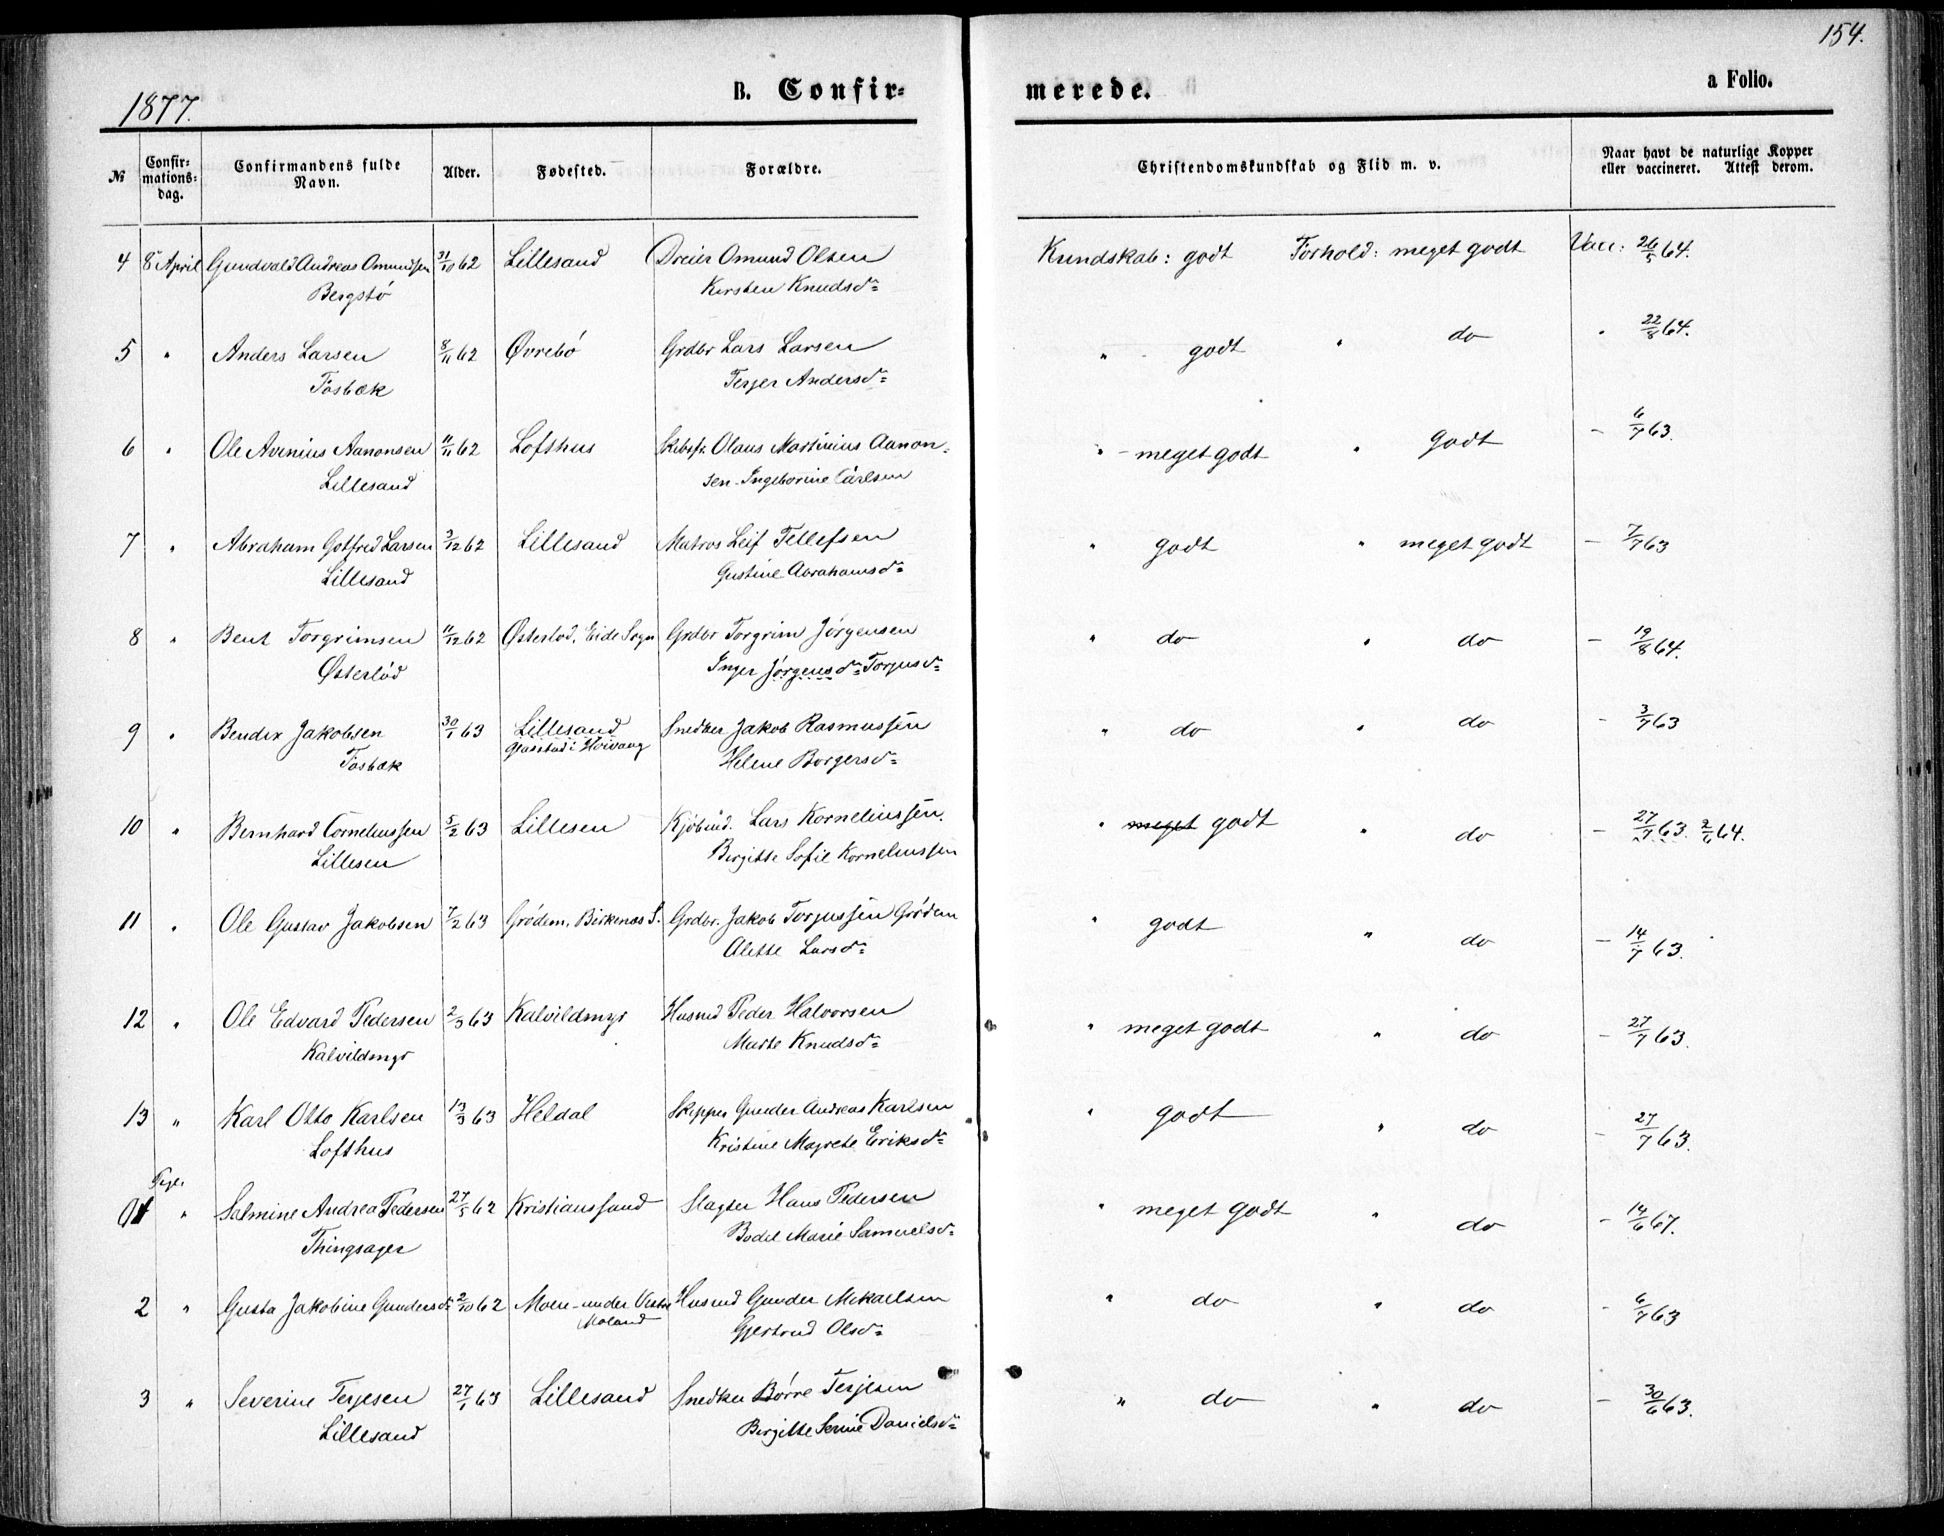 154.
1877.
B. Confir- merede.
a Folio.
№ Confir-mations-dag. Confirmandens fulde Navn. Alder. Fødested. Forældre. Christendomskundskab og Flid m. v. Naar havt de naturlige Kopper eller vaccineret. Attest derom.
4 8 April Gundvald Andreas Omundsen 31/10 62 Lillesand Dreier Omund Olsen Kundskab: godt Forhold: meget godt Vacc: 26/5 64.
Bergstø Kirsten Knudsdr
5 " Anders Larsen 8/11 62 Øvrebø Grdbr Lars Larsen " godt " do " 22/8 64.
Tosbæk Terjer Andersdr
6 " Ole Avinius Aanonsen 11/11 62 Lofthus Skibsfr. Olaus Martinius Aanon- " - meget godt " godt - 6/7 63.
Lillesand sen - Ingeborine Carlsen
7 " Abraham Gotfred Larsen 3/12 62 Lillesand Matros Leif Tellefsen " godt " meget godt - 7/7 63
Lillesand Gustine Abrahamsdr
8 " Bent Torgrimsen 11/12 62 Østerlød, Eide Sogn Grdbr Torgrim Jørgensen " do " do - 19/8 64.
Østerlød Inger Jørgensdr Torjusdr
9 " Bendix Jakobsen 30/1 63 Lillesand Snedker Jakob Rasmussen " do " do - 3/7 63
i Høivaag
Tosbæk Helene Borgersdr
10 " Bernhard Corneliussen 5/2 63 Lillesen Kjøbmd. Lars Korneliussen. " meget godt " do - 27/7 63. 2/6 64.
Lillesen Birgitte Sofie Korneliussen
11 " Ole Gustav Jakobsen 7/2 63 Grødem, Birkenæs S. Grdbr. Jakob Torjussen Grødem " godt " do - 14/7 63.
Alette Larsdr
12 " Ole Edvard Pedersen 2/3 63 Kalvildmyr Husmd Peder Halvorsen " meget godt " do - 27/7 63.
Kalvildmyr Marte Knudsdr
13 " Karl Otto Karlsen 13/3 63 Heldal Skipper Gunder Andreas Karlsen " godt " do - 27/7 63.
Lofthus Kristine Magrete Eriksdr
Piger
1 " Salmine Andrea Pedersen 27/5 62 Kristianssand Slagter Hans Pedersen " meget godt " do - 14/6 67.
Thingsager Bodil Marie Samuelsdr
2 " Gusta Jakobine Gundersdr 2/10 62 Moen under Vestre Husmd Gunder Mikaelsen " do " do - 6/7 63
Moland Gjertrud Olsdr
3 " Severine Terjesen 27/1 63 Lillesand Snedker Børre Terjesen " do " do - 30/6 63.
Lillesand Birgitte Serine Danielsdr